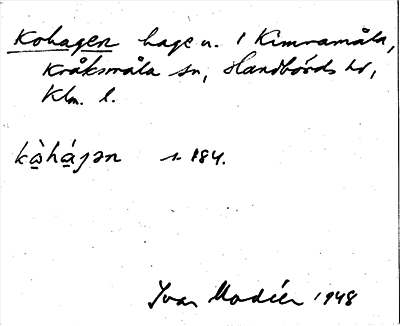 Kohagen hage n. i Kimramåla,
Kråksmåla sn, Handbörds hd,
Klm. l.
kò̱há̱gən s. 184.
Ivar Modéer 1948